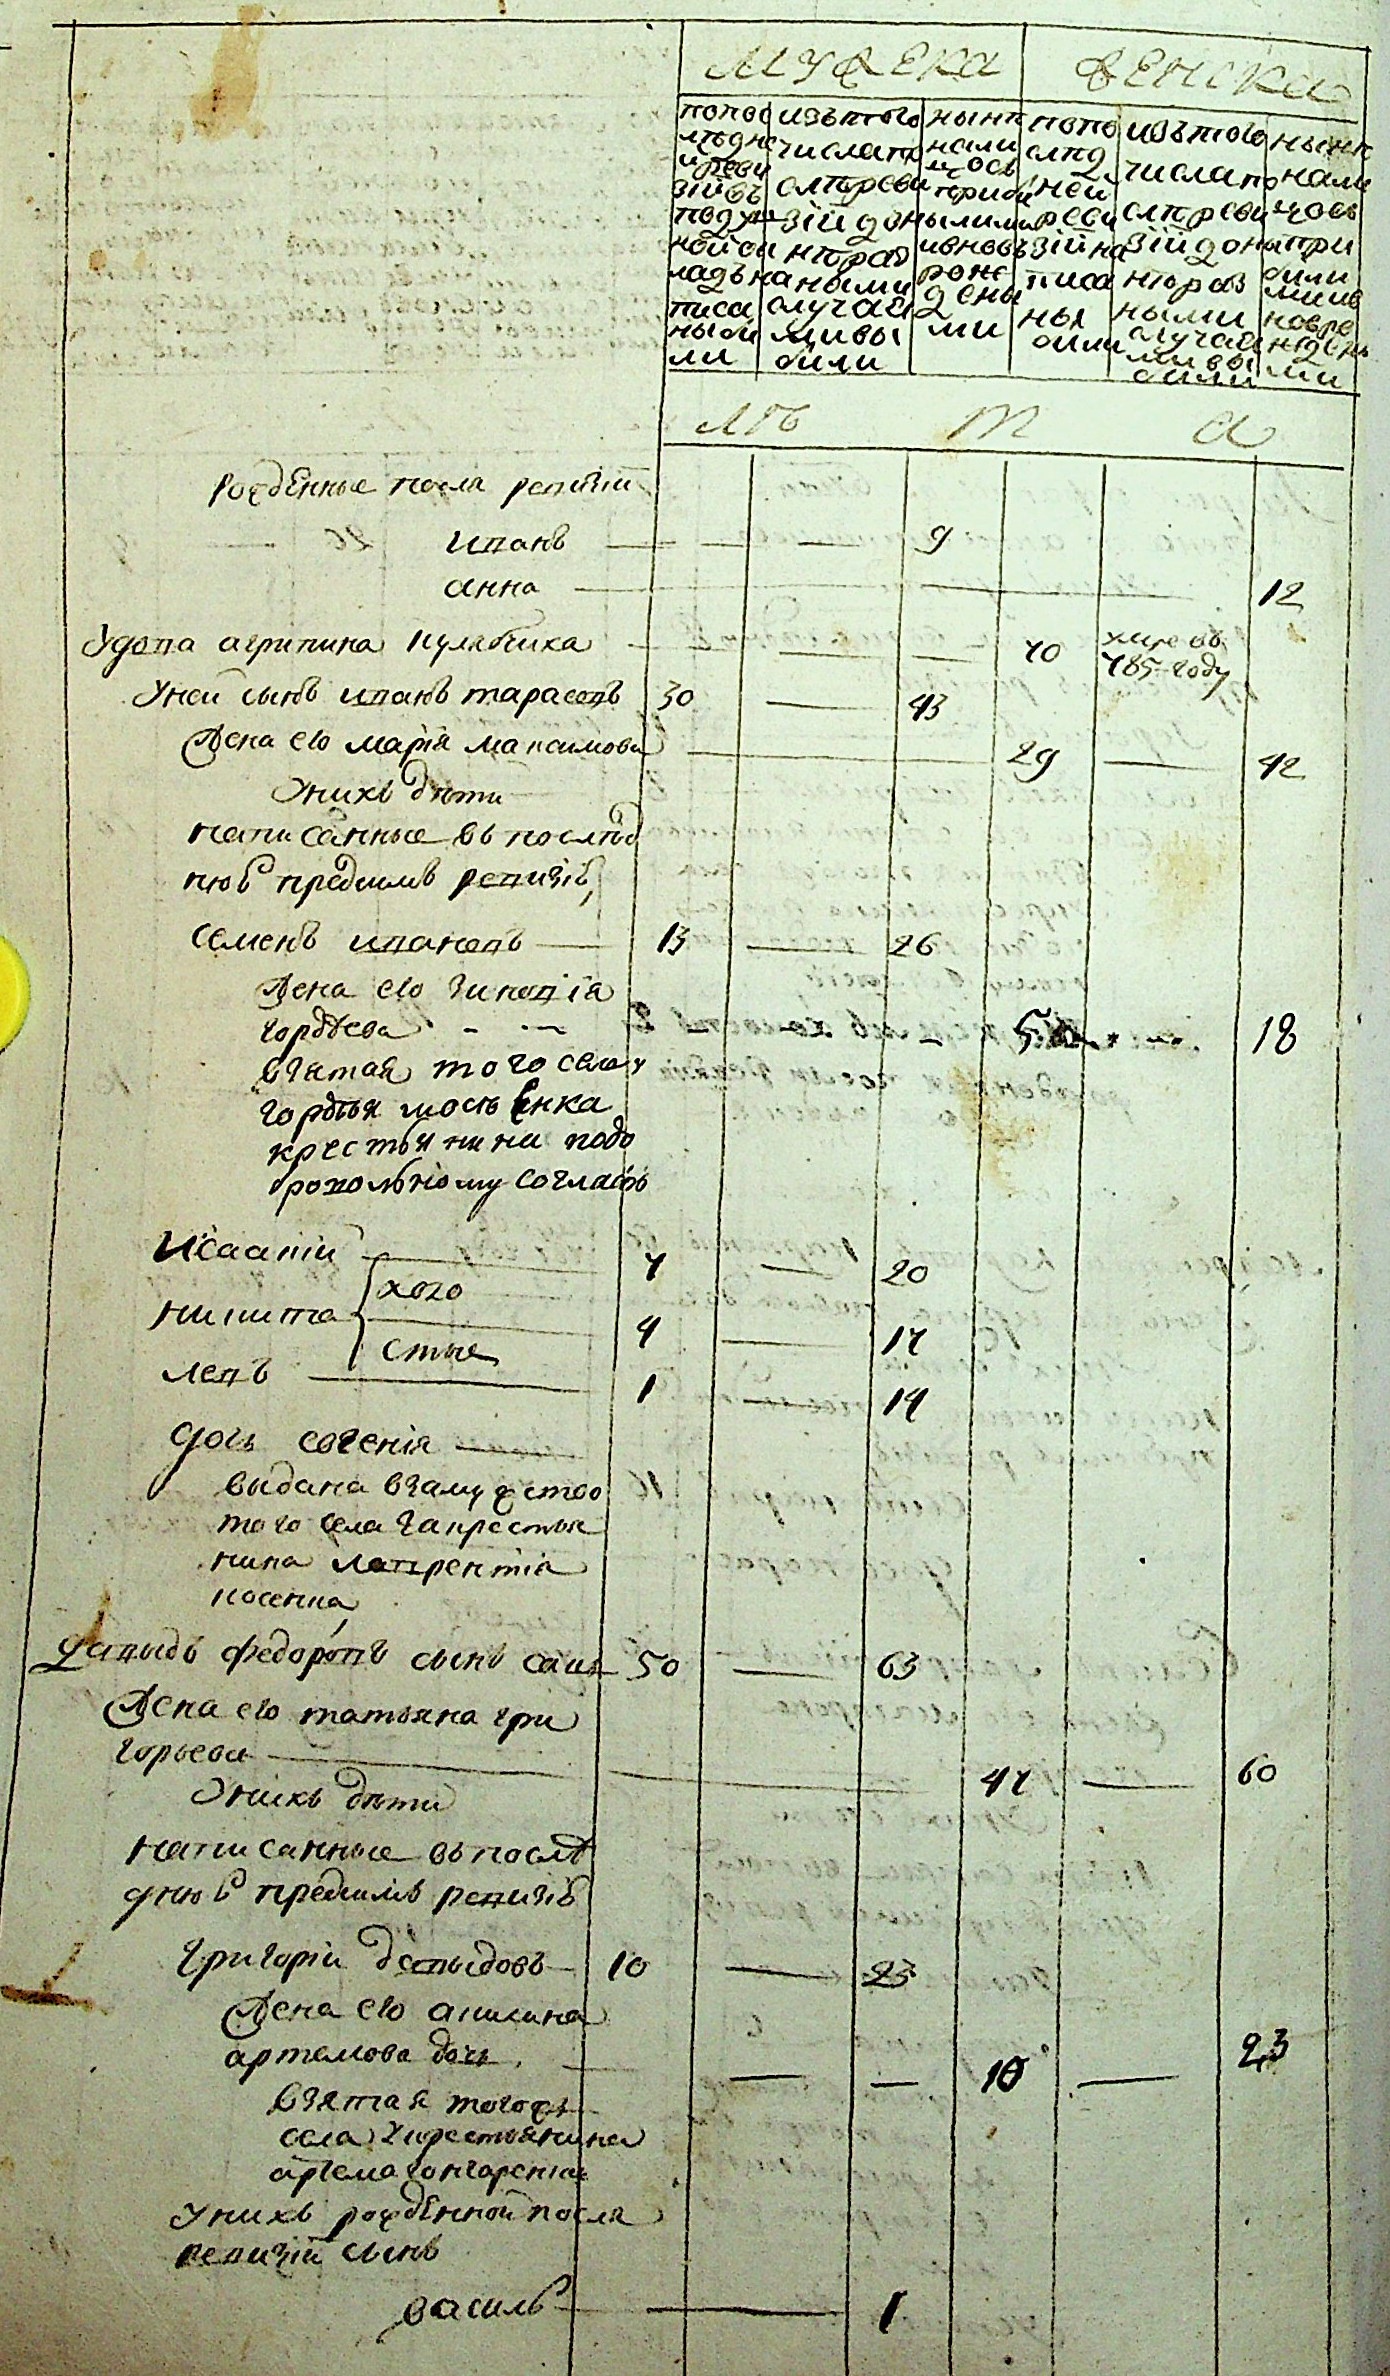 мужеска женска
попос лѣдне и реви зіи въ подуш ной ок ладъ на писа ны бы ли
изъ того числа по слѣ реви зіи до н нѣ раз ными случая ми вы были
ны нѣ на ли цо съ прибы лыми и вновь рож дены ми
по по слѣд ней реви зіи на писа ны были
изъ того числа по слѣ реви зіи до ны нѣ раз ными случая ми вы были
ны нѣ на ли цо съ при были ми и в новь рож дены ми
лѣ т а
рожденные посля ревизіи
иванъ 9
анна 12
Удова агрипина 70 умре въ 785 году
Уней сынъ иванъ тарасовъ 30 43
Жена его марія максимова 29 42
Унихъ дѣти
написанные въ послѣд
нюю предъ симъ ревизію
семенъ ивановъ 13 26
Жена его зиновія
гордѣева 5 18
взятая того села у
гордѣя мосъенка
крестьянина подо
бровольному согласію
Исаакіи 7 20
никита холо 4 17
левъ стые 1 14
дочь евгенія
выдана взамужство
того села за крестья
нина лаврентія
косенка
Давыдъ федоровъ сынъ 50 63
Жена его татьяна гри
горьева 47 60
Унихъ дѣти
написанные въ послѣ
днюю предъ симъ ревизію
григоріи давыдовъ 10 23
Жена его акилина
артемова дочь 10 23
взятая тогожъ
села у крестьянина
артема гончаренка
Унихъ рожденной посля
ревизіи сынъ
василь 1